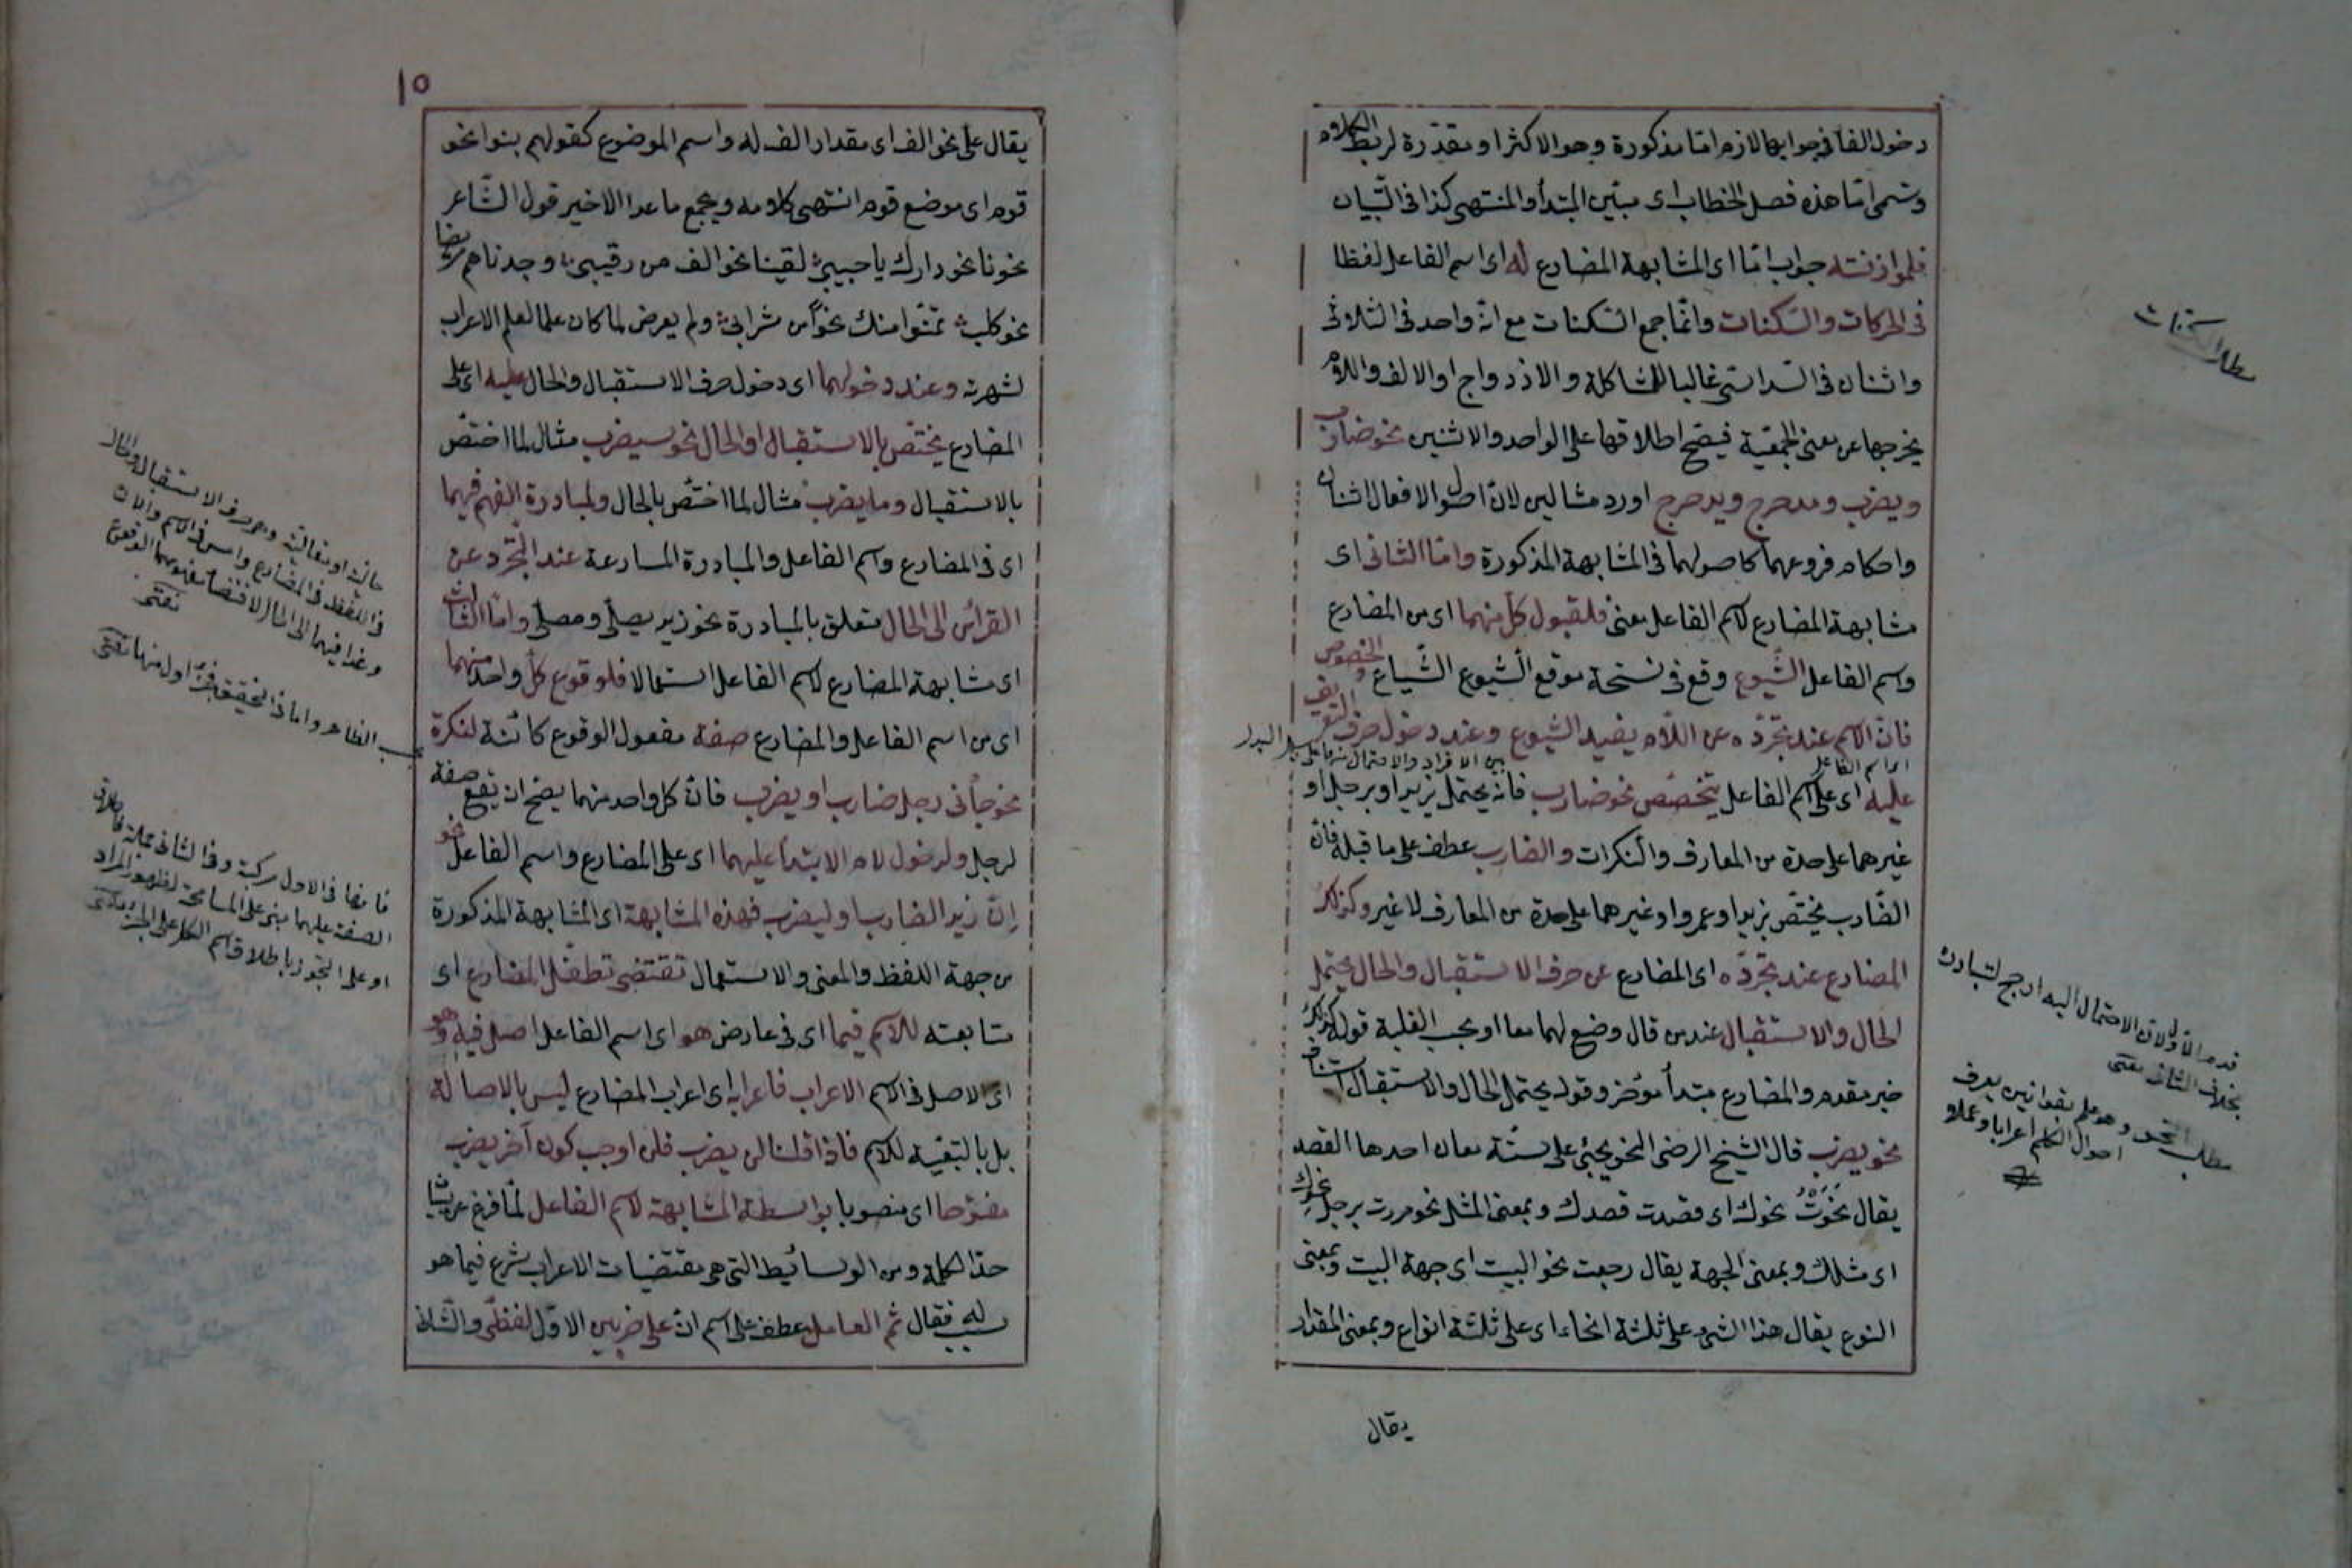 دخول الفا في جوابها لازم امّا مذكورة وهو الاكثر او مقدّرة لربط الكلام
وتسمى امّا هذه فصل الخطاب اى مبيّن المبتدأ والمنتهى كذا فى التّبيان
فلموازنته جواب امّا اى المشابهة المضارع له اى اسم الفاعل لفظا
فى الحركات والسّكنات وانّما جمع السّكنات مع انّه واحد فى الثلاثى
واثنان فى السّداسىّ غالبا للمشاكلة والازدواج او الالف واللام
يخرجها عن معنى الجمعيّة فيصحّ اطلاقها على الواحد والاثنين نحو ضارب
ويضرب ومدحرج ويدحرج اورد مثالين لانّ اصول الافعال اثنان
واحكام فروعهما كاصولهما فى المشابهة المذكورة وامّا الثانى اى
مشابهة المضارع لاسم الفاعل معنى فلقبول كلّ منهما اى من المضارع
واسم الفاعل الشّيوع وقع فى نسخة موقع الشّيوع الشّياع والخصوص
فانّ الاسم عند تجرّده عن اللّام يفيد الشّيوع وعند دخول حرف التعريف
عليه اى على اسم الفاعل يتخصّص نحو ضارب فانّه يحتمل زيدا وبرجل او
غيرهما على حدة من المعارف والنّكرات والضارب عطف على ما قبله فانّ
الضّارب يختصّ بزيد او عمرو او غيرهما على حدة من المعارف لا غير وكذلك
المضارع عند تجرّده اى المضارع عن حرف الاستقبال والحال يحتمل
الحال والاستقبال عند من قال وضع لهما معا او بحسب الغلبة قوله كذلك
خبر مقدم والمضارع مبتدأ مؤخّر وقوله يحتمل الحال والاستقبال استيناف
نحو يضرب قال الشّيخ الرضى النحو يجئ على ستّة معان احدها القصد
يقال نحوتُ نحوك اى قصدت قصدك وبمعنى المثل نحو مررت برجل نحوك
اى مثلك وبمعنى الجهة يقال رجعت نحو البيت اى جهة البيت وبمعنى
النوع يقال هذا الشئ على ثلثة انحاء اى على ثلثة انواع وبمعنى المقدار
يقال
قدم الاوّل لانّ الاحتمال اليه ارجح لتبادره
بخلاف الثانى
مطلب النحو وهو علم بقوانين يعرف
احوال الكلم اعرابا
١٥
يقال على نحو الف اى مقدار الف له واسم الموضوع كقولهم بنوا نحو
قوم اى موضع قوم انتهى كلامه ويجمع ما عدا الاخير قول الشّاعر
نحونا نحو دارك يا حبيبى لقينا نحو الف من رقيبى وجدناهم مريضا
نحو كلب تمنّوا منك نحوًا من شراب ولم يعرض لما كان علما لعلم الاعراب
لشهرته وعند دخولهما اى دخول حرف الاستقبال والحال عليه اى على
المضارع يختصّ بالاستقبال او الحال نحو سيضرب مثال لما اختصّ
بالاستقبال وما يضرب مثال لما اختصّ بالحال ولمبادرة الفهم فيهما
اى فى المضارع واسم الفاعل والمبادرة المسارعة عند التجرّد عن
القرائن الى الحال متعلق بالمبادرة نحو زيد يصلّى ومصلّى وامّا الثالث
اى مشابهة المضارع لاسم الفاعل استعمالا فلوقوع كلّ واحد منهما
اى من اسم الفاعل والمضارع صفة مفعول الوقوع كائنة لنكرة
نحو جاءنى رجل ضارب او يضرب فانّ كل واحد منهما يصحّ ان يقع صفة
لرجل ولدخول لام الابتداء عليهما اى على المضارع واسم الفاعل نحو
إنّ زيد الضارب او ليضرب فهذه المشابهة اى المشابهة المذكورة
من جهة اللفظ والمعنى والاستعمال تقتضى تطفّل المضارع اى
متابعته للاسم فيما اى فى عارض هو اى اسم الفاعل اصل فيه وهو
اى الاصل فى الاسم الاعراب فاعرابه اى اعراب المضارع ليس بالاصالة
بل بالتبعيّة للاسم فاذا قلنا لن يضرب فلن اوجب كون آخر يضرب
مفتوحا اى منصوبا بواسطة المشابهة لاسم الفاعل لمّا فرغ عن بيان
هذا الكلمة ومن الوسائيط التى هى مقتضيات الاعراب شرع فيما هو
سبب له فقال ثم العامل عطف على اسم انّ على ضربين الاوّل لفظىّ والثّانى